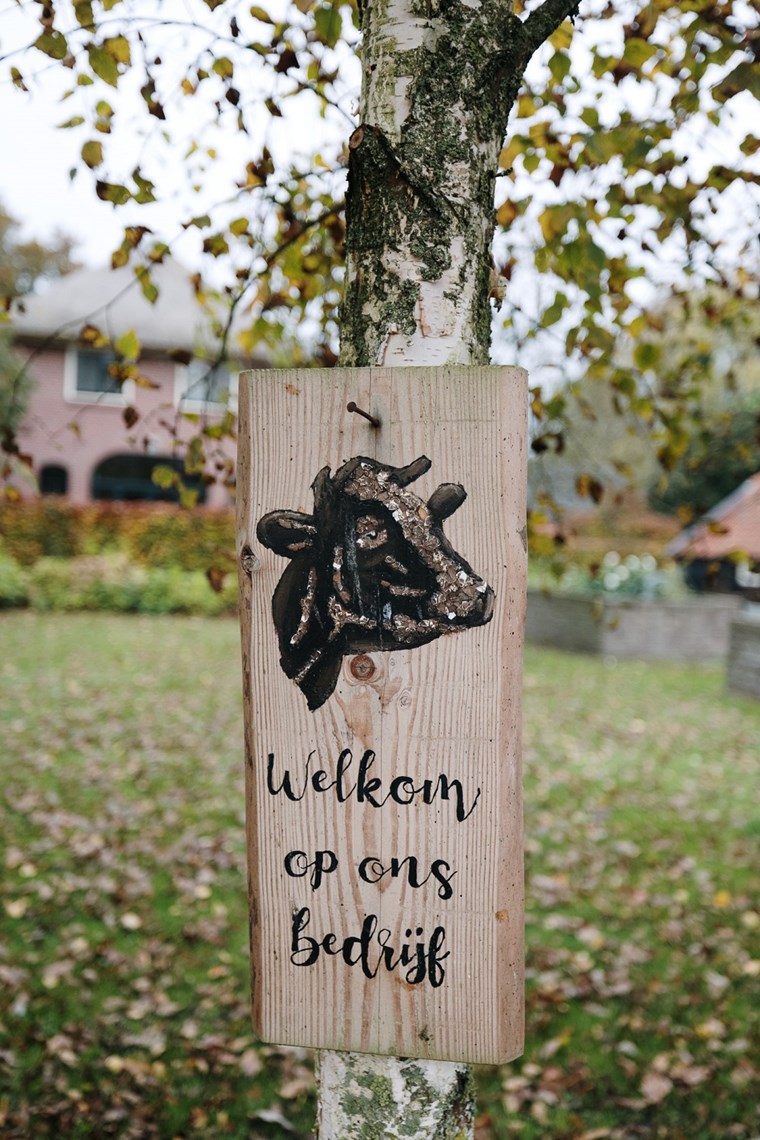 Welkom
op ons
bedrijf